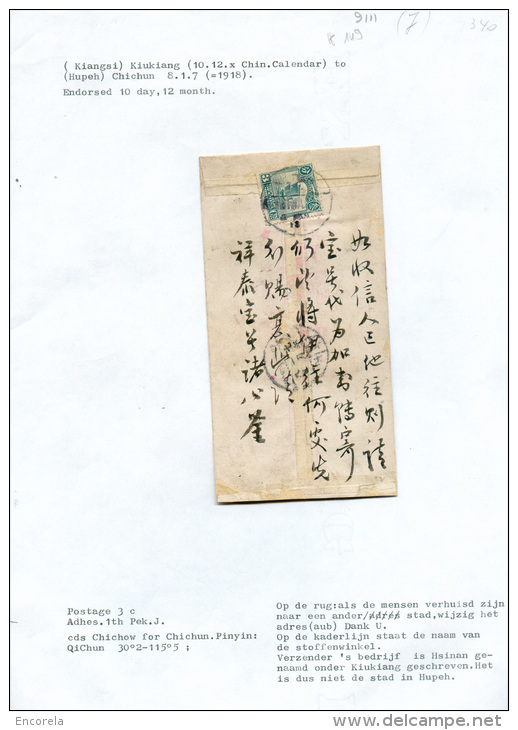 9111 (J) 340
8 119
( Kiangsi) Kiukiang (10.12.x Chin.Calendar) to
(Hupeh) Chichun 8.1.7 (=1918).
Endorsed 10 day,12 month.
如收信人已他往则請
宝号代为加封轉寄
何處先
示賜
祥泰宝号諸公鉴
Postage 3 c
Adhes.1th Pek.J.
cds Chichow for Chichun.Pinyin:
QiChun 30º2-115º5 ;
Op de rug:als de mensen verhuisd zijn
naar een ander stad,wijzig het
adres(aub) Dank U.
Op de kaderlijn staat de naam van
de stoffenwinkel.
Verzender 's bedrijf is Hsinan ge-
naamd onder Kiukiang geschreven.Het
is dus niet de stad in Hupeh.
Encorela
www.delcampe.net